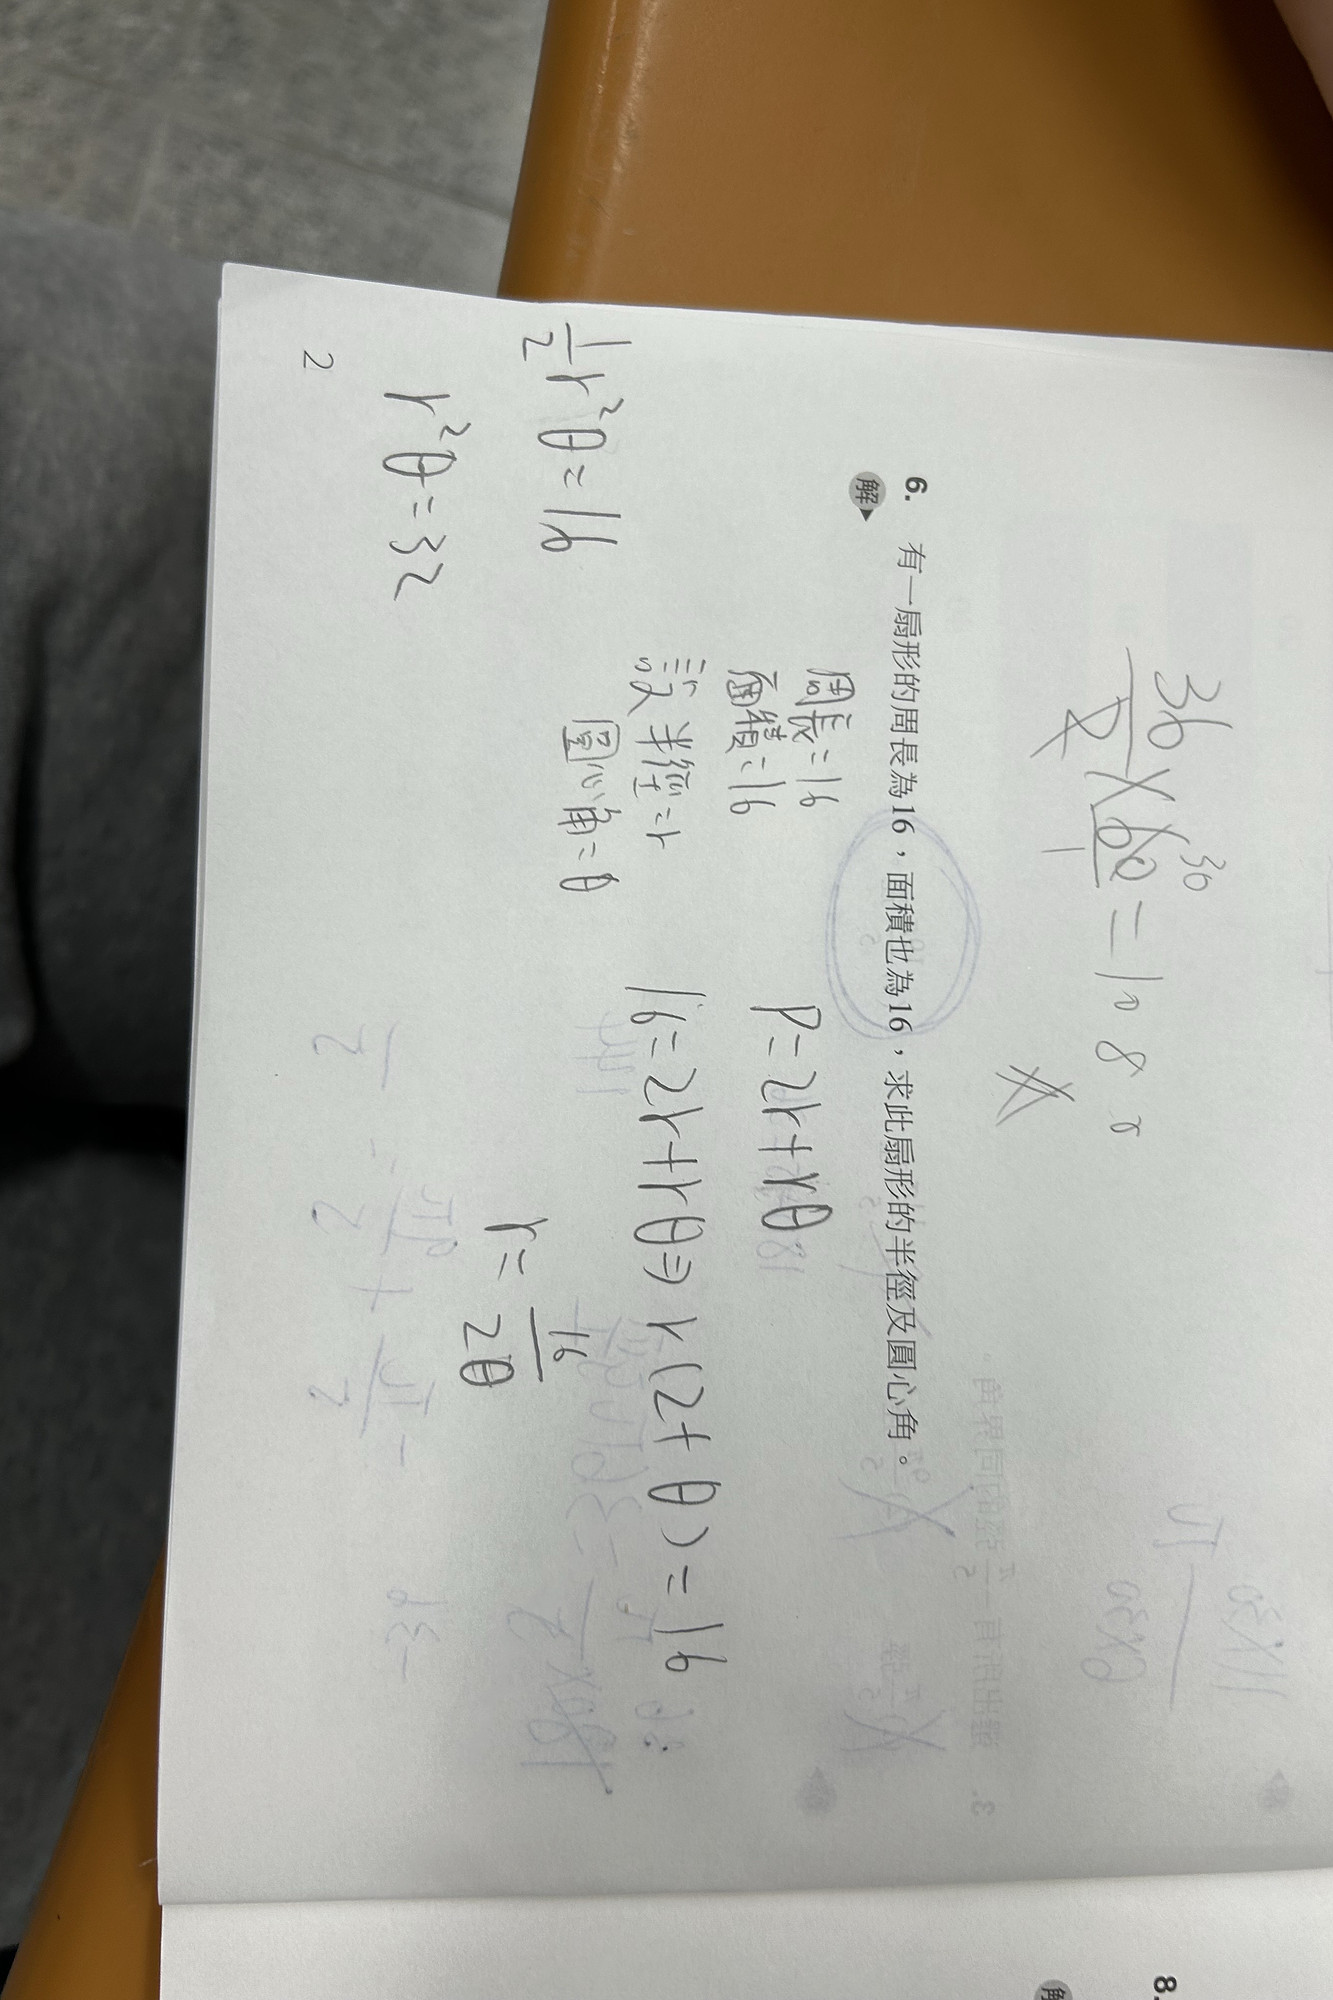 36/2 × 60 30/1 = 108°
6. 有一扇形的周長為16，面積也為16，求此扇形的半徑及圓心角。
解
周長=16
面積=16
設半徑=r
圓心角=θ
P=2r+rθ
16=2r+rθ⇒r(2+θ)=16
r=16/2θ
1/2 r²θ=16
r²θ=32
2
8.
解